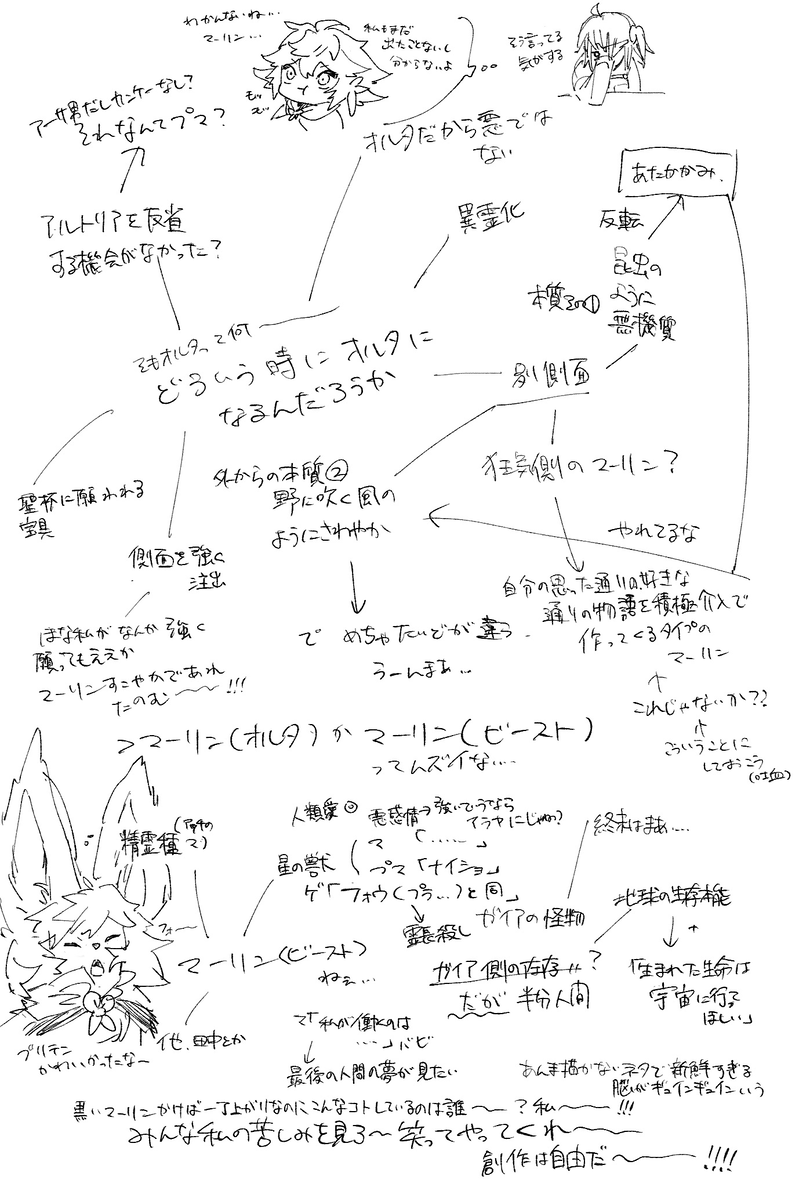 わかんないね…
マーリン…
私もまだ
出たことないし
分からないよ
そう言ってる
気がする
アーサー男だしカンケーなし?
それなんてプマ?
オルタだから悪では
ない
あたたかみ
反転
アルトリアを反省
する機会がなかった?
異霊化
昆虫の
ように
悪機質
本質その①
そもオルタって何
どういう時にオルタに
なるんだろうか
別側面
外からの本質②
野に吹く風の
ようにさわやか
狂気側のマーリン?
聖杯に願われる
宝具
やれてるな
側面を強く
注出
自分の思った通りの好きな
通りの物語を積極介入で
作ってくるタイプの
マーリン
ほな私がなんか強く
願ってもええか
マーリンすこやかであれ
たのむ〜〜!!!
で めちゃたいどが違う
うーんまぁ…
これじゃないか??
こういうことに
しておこう
(吐血)
>マーリン(オルタ)か マーリン(ビースト)
ってムズイな…
精霊種
人類愛
悪感情
強いていうなら
アラヤにじゃね?
マ「……」
プマ「ナイショ」
ゲ「フォウ(プラ…)と同」
終末はまぁ…
星の獣
霊長殺し
ガイアの怪物
地球の生存本能
フォー
マーリン(ビースト)
ねぇ…
ガイア側の存在?
だが 半分人間
「生まれた生命は
宇宙に行って
ほしい」
他、田中とか
プリテン
かわいかったな〜
マ「私が働くのは
…」バビ
最後の人間の夢が見たい
あんま描かないネタで新鮮すぎる
脳がギュインギュインいう
黒いマーリンかけば一丁上がりなのにこんなコトしているのは誰〜?私〜!!!
みんな私の苦しみを見ろ〜笑ってやってくれ〜
創作は自由だ〜!!!!